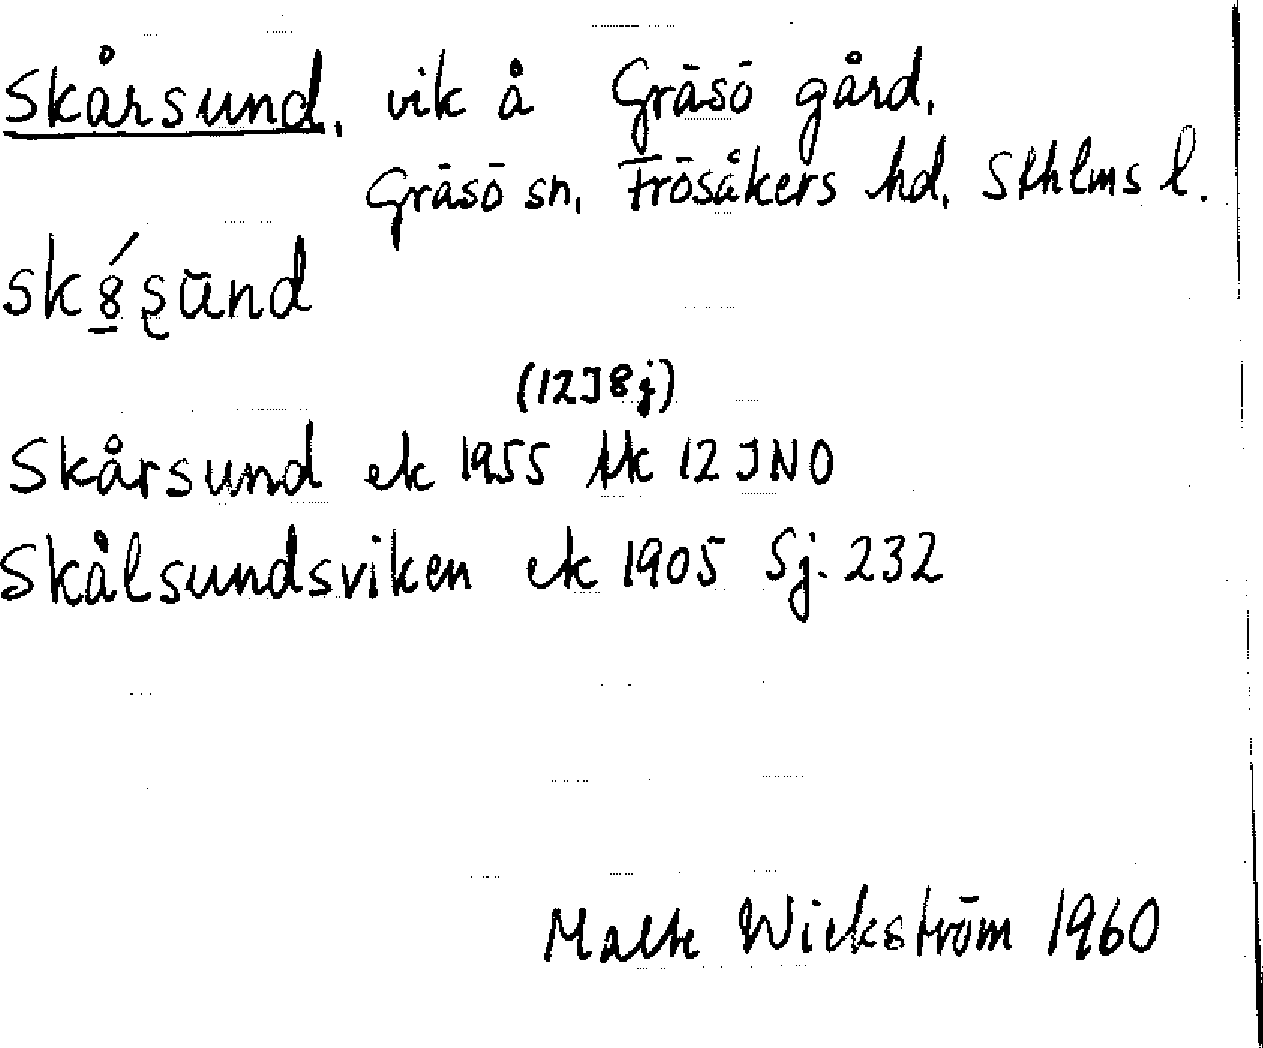 Skårsund, vik å Gräsö gård,
Gräsö sn, Frösåkers hd, Sthlms l.
(12I8j)
Skårsund ek 1955 tk 12 I NO
Skålsundsviken ek 1905 Sj. 232
Malte Wickström 1960